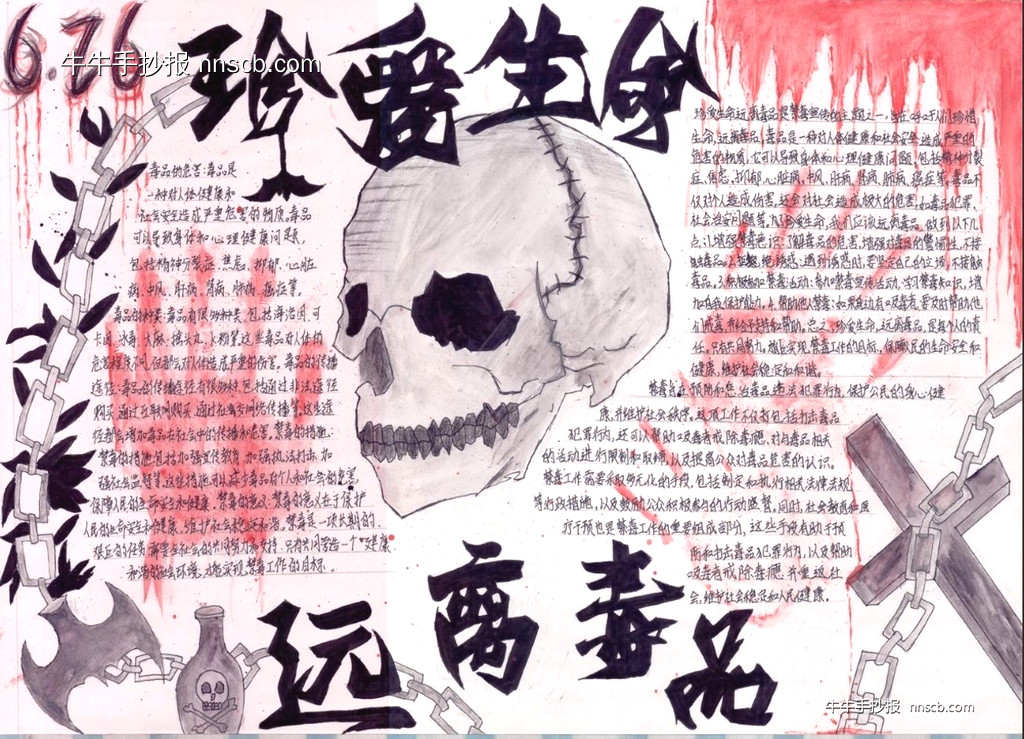 6.26
牛牛手抄报 nnscb.com
珍爱生命
毒品的危害:毒品是
一种对人体健康和
社会安全造成严重危害的物质。毒品
可以导致身体和心理健康问题,
包括精神分裂症、焦虑、抑郁、心脏
病、中风、肝病、肾病、肺病、癌症等。
毒品的种类:毒品有很多种类,包括海洛因、可
卡因、冰毒、大麻、摇头丸、
危害程度不同,但都会对人体造成严重的伤害。毒品的传播
途径:毒品的传播途径有很多种,包括通过非法途径
购买、通过互联网购买、通过社交网络传播等。这些途
径都会增加毒品在社会中的传播和危害。禁毒的措施:
禁毒的措施包括加强宣传教育、加强执法打击、加
保障人民的生命安全和健康。禁毒的意义:禁毒的意义在于保护
人民的生命安全和健康,维护社会稳定和谐。禁毒是一项长期的、
艰巨的任务,需要全社会的共同努力和支持。只有共同营造一个健康
和谐的社会环境,才能实现禁毒工作的目标。
珍爱生命,远离毒品是禁毒宣传的主题之一,旨在呼吁人们珍惜
生命,远离毒品。毒品是一种对人体健康和社会安全造成严重的
危害的物质,它可以导致身体和心理健康问题,包括精神分裂
症、焦虑、抑郁、心脏病、中风、肝病、肾病、肺病、癌症等。毒品不
仅对个人造成伤害,还会对社会造成极大的危害,如毒品犯罪、
社会治安问题等。为珍爱生命,我们应该远离毒品,做到以下几
点:1、增强禁毒意识:了解毒品的危害,增强对毒品的警惕性,不接
触毒品。2、拒绝诱惑:遇到诱惑时,要坚定自己的立场,不接触
毒品。3、积极参加禁毒活动:参加禁毒宣传活动,学习禁毒知识,增
加自我保护能力。4、帮助他人禁毒:如果身边有人吸毒者,要及时帮助他
们戒毒,并给予支持和帮助。总之,珍爱生命,远离毒品,是每个人的责
任。只有共同努力,才能实现禁毒工作的目标,保障人民的生命安全和
健康,维护社会稳定和和谐。
禁毒旨在预防和惩治毒品违法犯罪行为,保护公民的身心健
康,并维护社会秩序。这项工作不仅包括打击毒品
犯罪行为,还可以帮助吸毒者戒除毒瘾,对与毒品相关
的活动进行限制和取缔,以及提高公众对毒品危害的认识。
禁毒工作需要采取多元化的手段,包括制定和执行相关法律法规
等行政措施,以及鼓励公众积极参与的行动监督,同时,社会教育和医
疗干预也是禁毒工作的重要组成部分,这些手段有助于预
防和打击毒品犯罪行为,以及帮助
吸毒者戒除毒瘾,并重返社
会,维护社会稳定和人民健康。
远离毒品
牛牛手抄报 nnscb.com